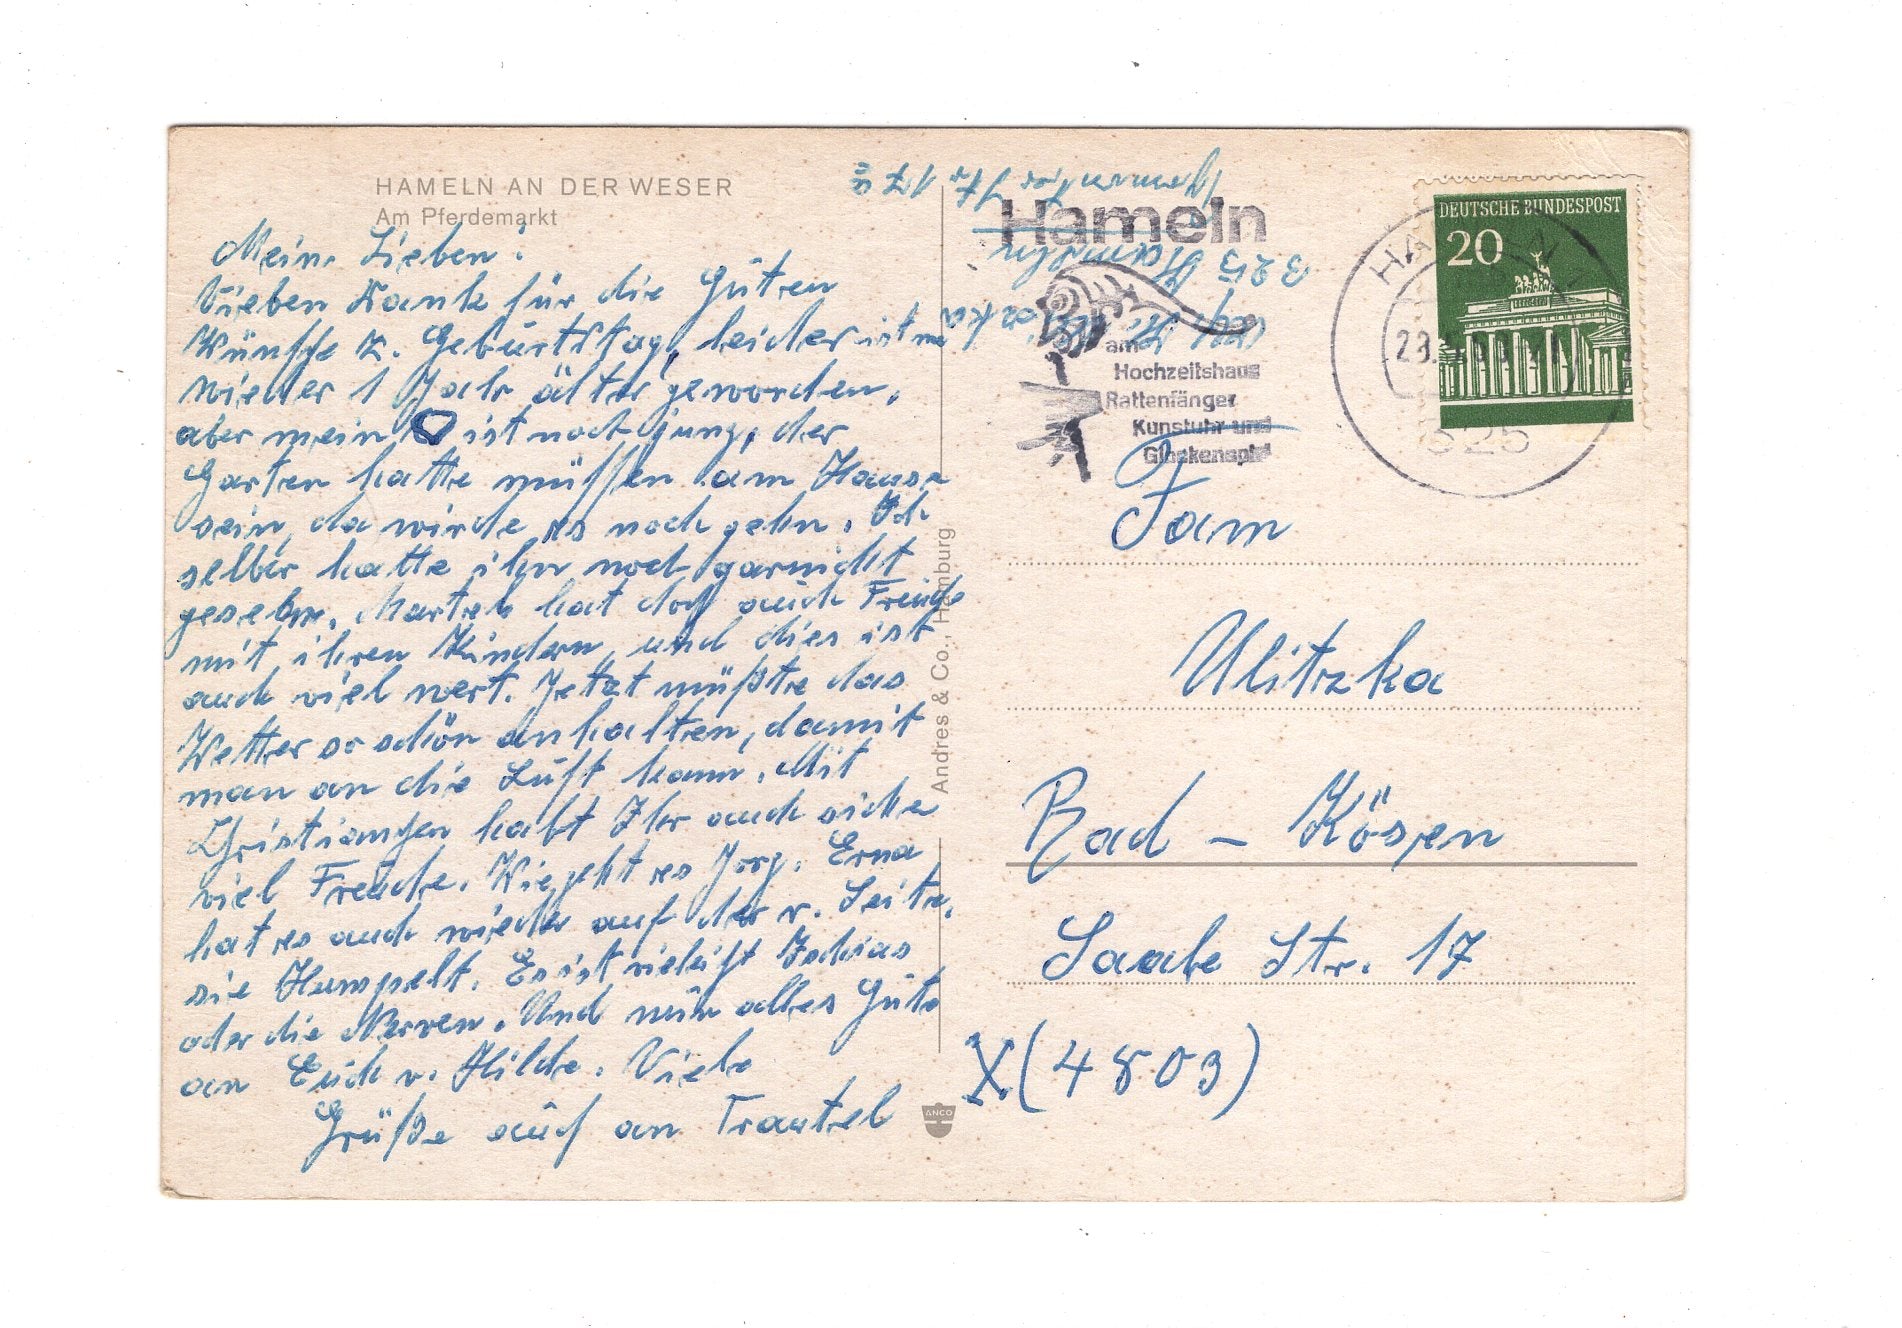 HAMELN AN DER WESER
Am Pferdemarkt
Meine Lieben!
Vieben Dank für die Guten
Wünsche z. Geburtstag, leider ist man
wieder 1 Jahr älter geworden,
aber mein ist noch jung, der
Garten hatte müssen am Hause
sein, da würde es noch gehn. Ich
selber hatte ihn noch garnicht
gesehn. hat doch auch Freude
mit ihren Kindern, und dies ist
auch viel wert. Jetzt müßte das
Wetter so schön anhalten, damit
man an die Luft kann. Mit
Christianchen habt Ihr auch sicher
viel Freude. Wie geht es Jörg. Erna
hat es auch wieder auf der r. Seite,
sie Humpelt. Es ist vieleicht Ischias
oder die Nerven. Und nun alles Gute
an Euch v. Hilde. Viele
Grüße auch an Trautel
Andres & Co., Hamburg
ANCO
3 25 Hameln
Hameln
am
Hochzeitshaus
Rattenfänger
Kunstuhr und
Glockenspiel
DEUTSCHE BUNDESPOST
20
HAMELN 1
325
Fam
Ulitzka
Bad - Kösen
Saale Str. 17
X (4803)